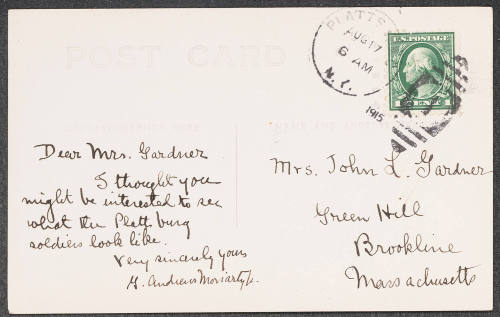 POST CARD
PLATTS
AUG 17
6 AM
N.Y.
1915
U.S. POSTAGE
CENTS
Dear Mrs. Gardner
I thought you
might be interested to see
what the Plattburg
soldiers look like.
Very sincerely yours
G. Andrews Moriarty Jr.
Mrs. John L. Gardner
Green Hill
Brookline
Massachusetts